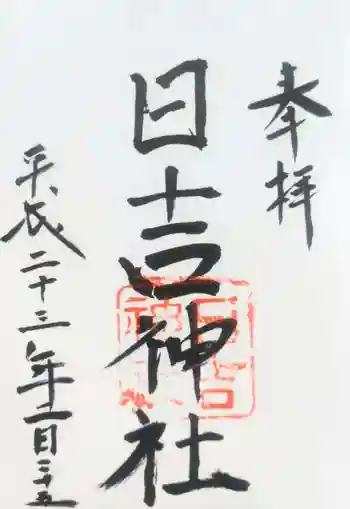 奉拝
日吉神社
平成二十三年十一月二十五